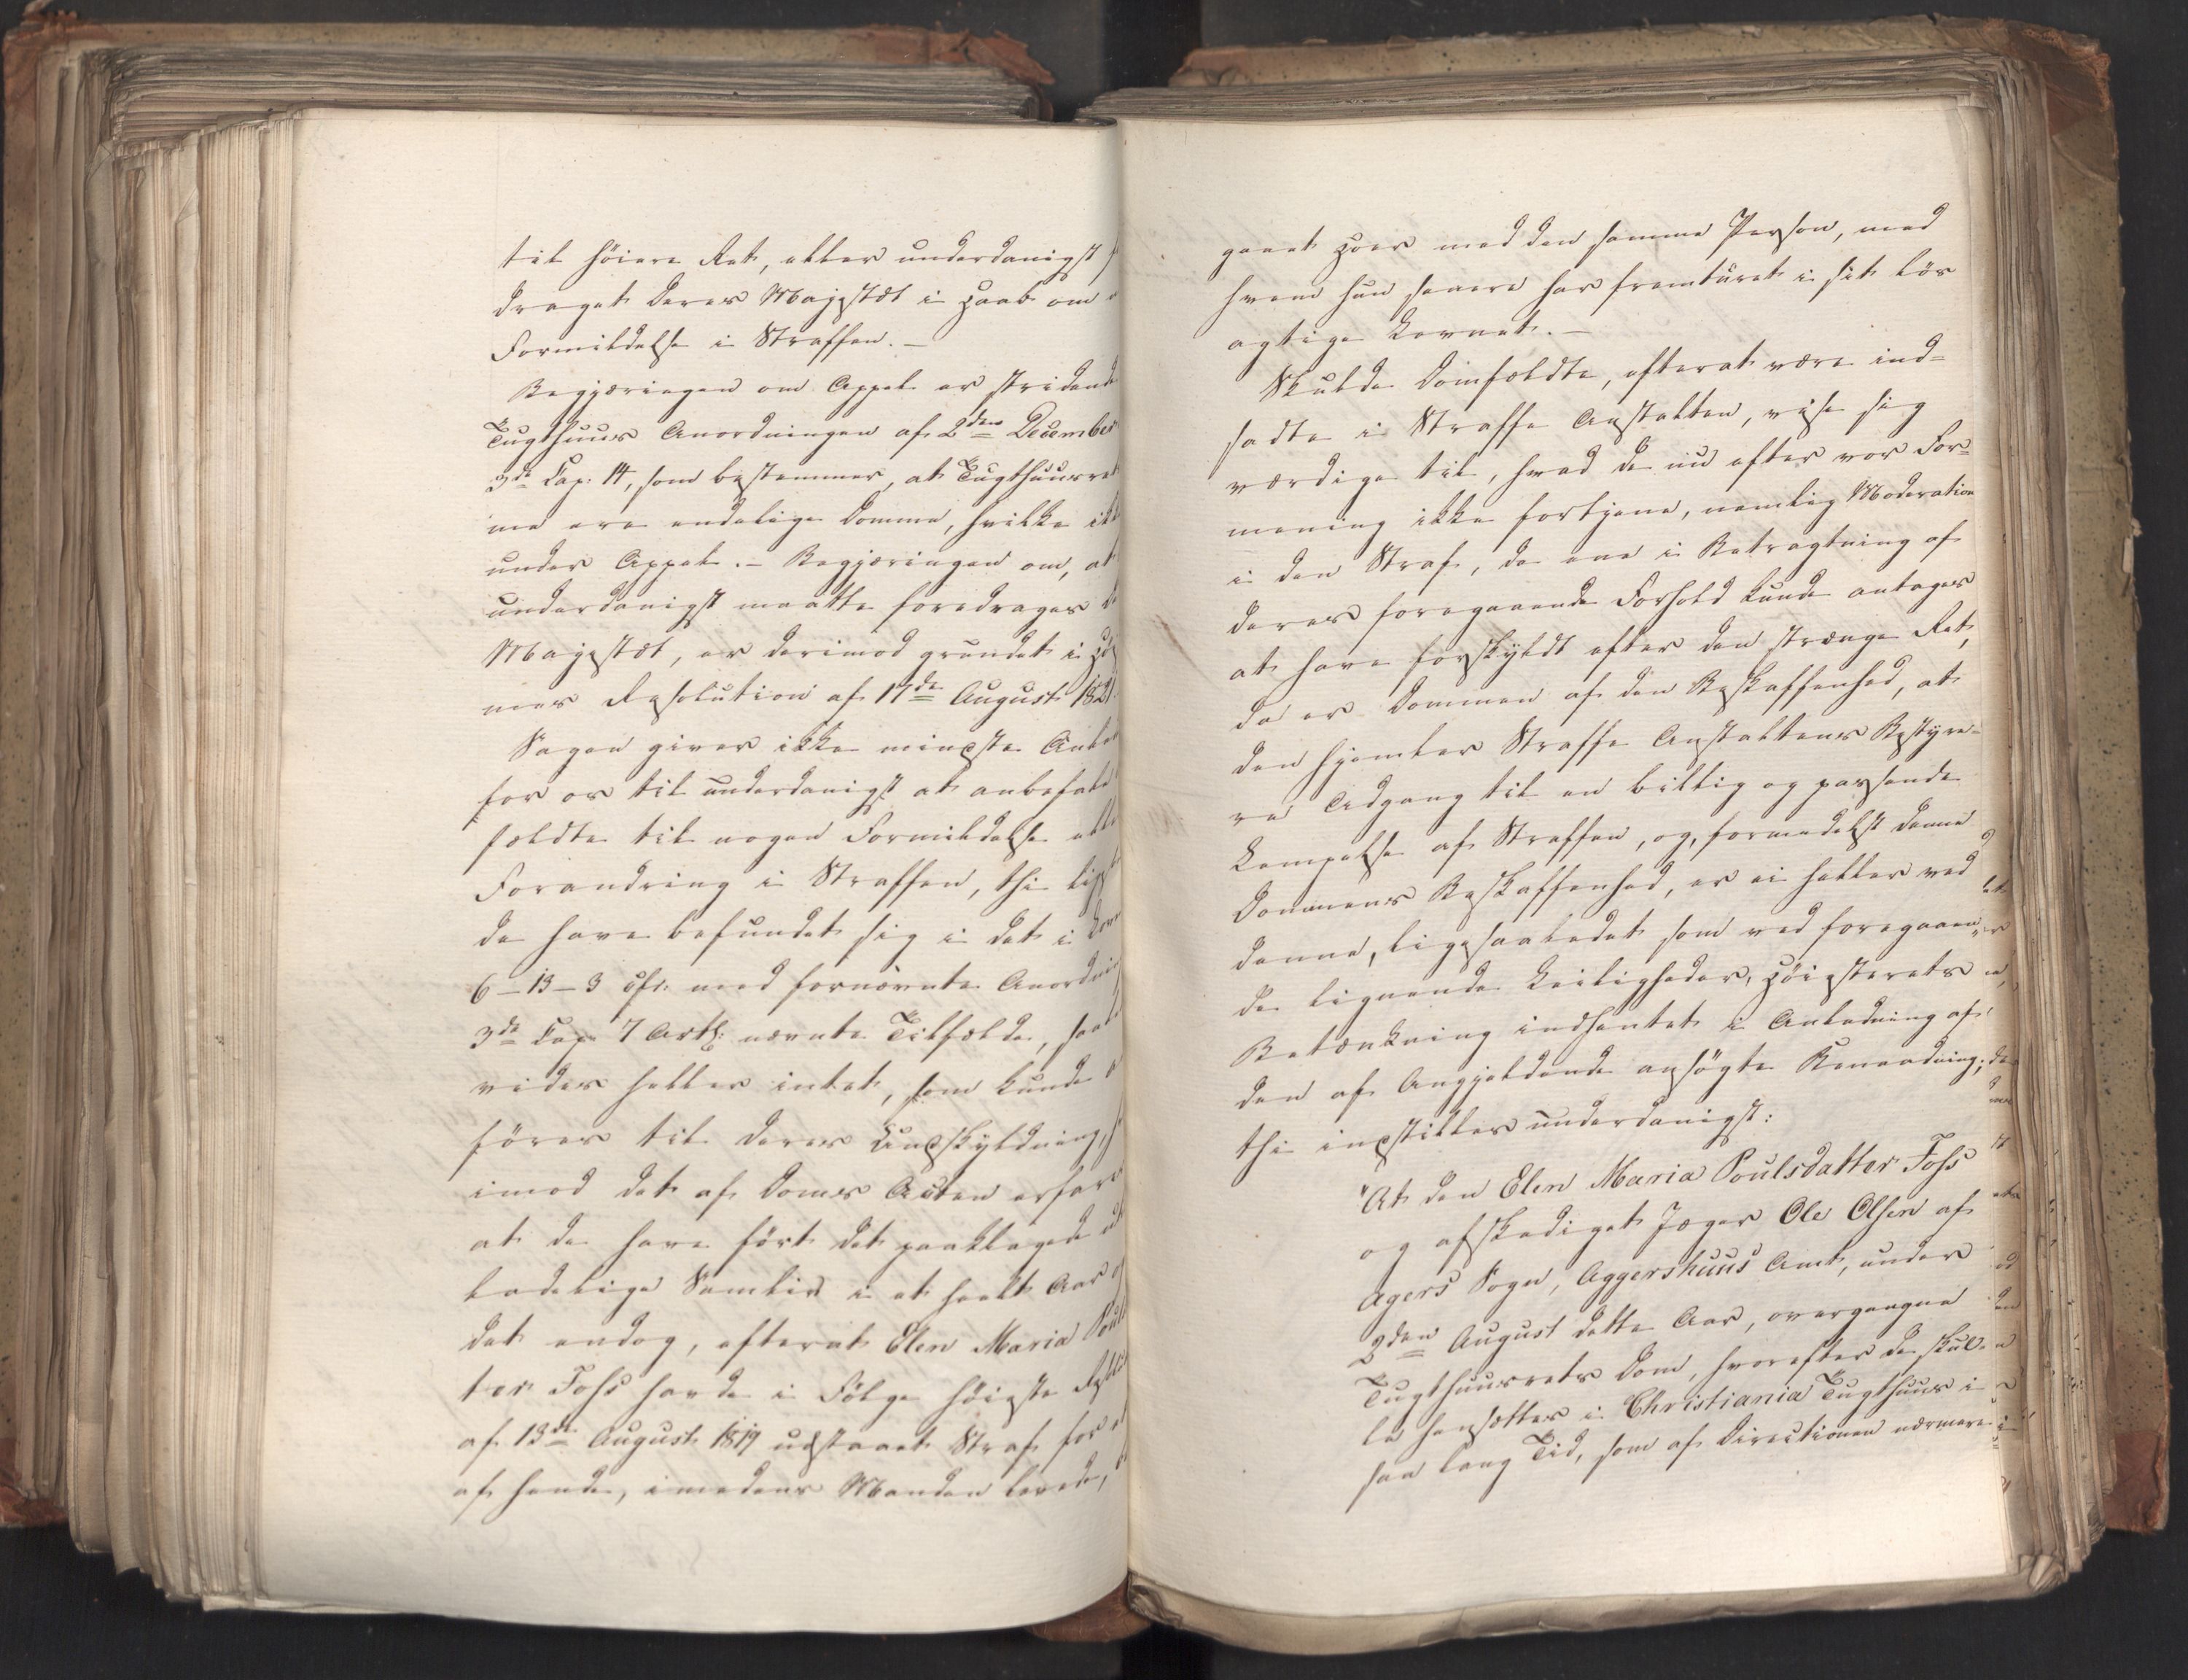 til høiere Ret, eller underdanigst
draget Deres Majestæt i Haab om
Formildelse i Straffen. —
Begjæringen om Appel er stridende
Tugthuus Anordningen af 2den December
3de Cap: 14, som bestemmer, at Tugthuusret
me ere endelige Domme, hvilke ikk
under Appel. — Begjæringen om, at
underdanigst maatte foredrages
Majestæt, er derimod grundet i Høi
mes Resolution af 17de August 1821.
Sagen giver ikke mindste Anled
for os til underdanigst at anbefale
fældte til nogen Formildelse elle
Forandring i Straffen, thi lige
de have befundet sig i det i Lov
6—13—3 cfr. med fornævnte Anordnin
3de Cap 7 Art: nævnte Tilfælde, saale
vides heller intet, som kunde
föres til deres Undskyldning,
imod det af Doms Acten erfar
at de have fört det paaklagede
ladelige Samliv i et heelt Aar og
det endog, efterat Elen Maria Pouls
ter Foss havde i Følge höieste Resol
af 13de August 1819 udstaaet Straf for
af hende, imedens Manden levede,
gaaet Hoer med den samme Person, med
hvem hun senere har fremturet i sit lös
agtige Levnet. —
Skulde Domfældte, efterat være ind=
satte i Straffe Anstalten, vise sig
værdige til, hvad de nu efter vor For=
mening ikke fortjene, nemlig Moderation
i den Straf, de ene i Betragtning af
deres foregaaende Forhold kunde antages
at have forskyldt efter den strænge Ret,
da er Dommen af den Beskaffenhed, at
den hjemler Straffe Anstaltens Bestyre=
re Adgang til en billig og passende
Lempelse af Straffen, og, formedelst denne
Dommens Beskaffenhed, er ei heller ved
denne, ligesaaledet som ved foregaaen=
de lignende Leiligheder, Höiesterets
Betænkning indhentet i Anledning af
den af Angjeldende ansögte Benaadning;
thi indstilles underdanigst:
"At den Elen Maria Poulsdatter Foss
og afskediget Jæger Ole Olsen af
Agers Sogn, Aggershuus Amt, under
2den August dette Aar, overgangne
Tugthuusrets Dom, hvorefter de skul=
le hensættes i Christiania Tugthuus i
saa lang Tid, som af Directionen nærmere